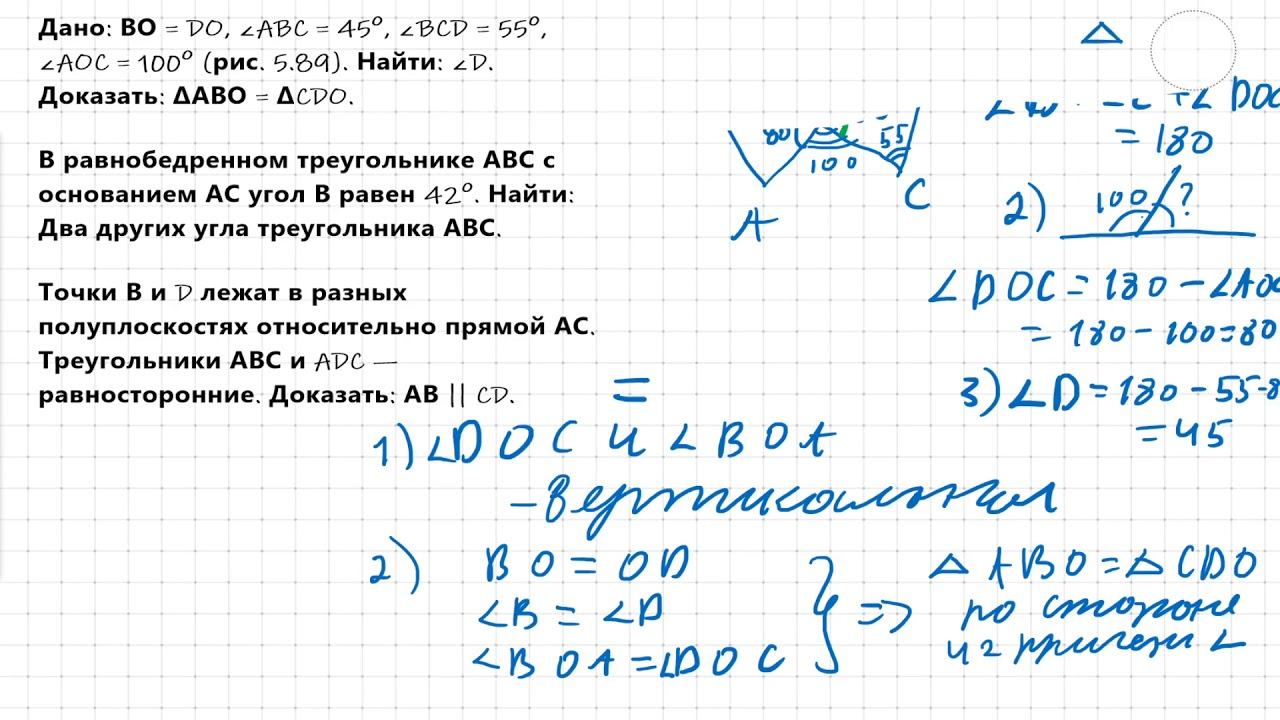 Дано: BO = DO, ∠ABC = 45°, ∠BCD = 55°,
∠AOC = 100° (рис. 5.89). Найти: ∠D.
Доказать: ΔABO = ΔCDO.
В равнобедренном треугольнике ABC с
основанием AC угол B равен 42°. Найти:
Два других угла треугольника ABC.
Точки B и D лежат в разных
полуплоскостях относительно прямой AC.
Треугольники ABC и ADC —
равносторонние. Доказать: AB || CD.
△
∠ DOC
= 180
80 100 55
A C
2) 100 ?
∠DOC = 180 - ∠AOC
= 180 - 100 = 80
3) ∠D = 180 - 55 - 8
= 45
=
1) ∠DOC и ∠BOA
- вертикальная
2) BO = OD
∠B = ∠D
∠BOA = ∠DOC
=> △ABO = △CDO
по стороне
и 2 прилеж ∠